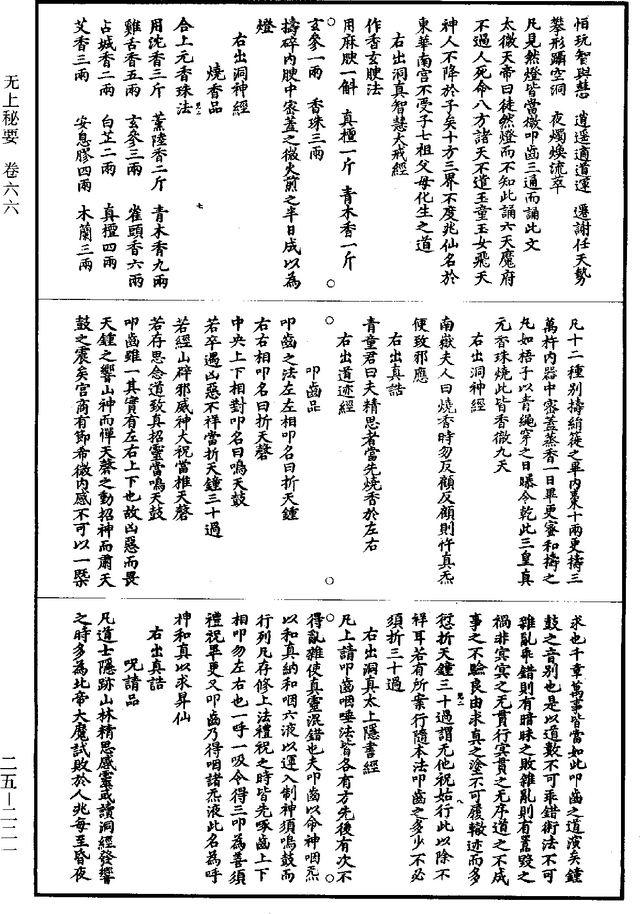 恒玩智與慧　逍遥適道運　還謝任天勢
攀形躡空洞　夜燭煥流萃
凡見然燈皆當微叩齒三通而誦此文
太微天帝曰徒然燈而不知此誦六天魔府
不過人死命八方諸天不遣玉童玉女飛天
神人不降於子矣十方三界不度兆仙名於
東華南宮不受子七祖父母化生之道
右出洞真智慧大戒經
作香玄腴法
用麻腴一斛　真檀一斤　青木香一斤
玄參一兩　香珠三兩
擣碎內腴中密蓋之微火煎之半日成以為
燈
右出洞神經
燒香品
合上元香珠法
用沈香三斤　薰陸香二斤　青木香九兩
雞舌香五兩　玄參三兩　雀頭香六兩
占城香二兩　白芷二兩　真檀四兩
艾香三兩　安息膠四兩　木蘭三兩
凡十二種別擣絹篩之畢內棗十兩更擣三
萬杵內器中密蓋蒸香一日畢更蜜和擣之
丸如梧子以青繩穿之日曝令乾此三皇真
元香珠燒此皆香徹九天
右出洞神經
南嶽夫人曰燒香時勿反顧反顧則忤真炁
使致邪應
右出真誥
青童君曰夫精思者當先燒香於左右
右出道迹經
叩齒品
叩齒之法左左相叩名曰折天鍾
右右相叩名曰折天磬
中央上下相對叩名曰鳴天鼓
若卒遇凶惡不祥當折天鍾三十過
若經山辟邪威神大祝當推天磬
若存思念道致真招靈當鳴天鼓
叩齒雖一其實有左右上下也故凶惡而畏
天鍾之響山神而憚天磬之動招神而肅天
鼓之震矣宮商有節希微內感不可以一槩
求也千章萬事皆當如此叩齒之道演矣鍾
鼓之音別也是以道數不可乖錯術法不可
雜亂乖錯則有暗昧之敗雜亂則有罵毀之
禍非冥冥之无貫行冥貫之无序道之不成
事之不驗良由求真之塗不可履轍迹而多
愆折天鍾三十過謂无他祝姑行此以除不
祥耳若有所業行隨本法叩齒之多少不必
須折三十過
右出洞真太上隱書經
凡上請叩齒咽唾法皆各有方先後有次不
得亂雜使真靈混錯也夫叩齒以命神咽炁
以和真納和咽六液以運入制神須鳴鼓而
行列凡存修上法禮祝之時皆先啄齒上下
相叩勿左右也一呼一吸令得三叩為善須
禮祝畢更又叩齒乃得咽諸炁液此名為呼
神和真以求昇仙
右出真誥
呪請品
凡道士隱跡山林精思感靈或讀洞經發響
之時多為北帝大魔試敗於人兆每至昏夜
无上秘要　卷六六
二五－二二一